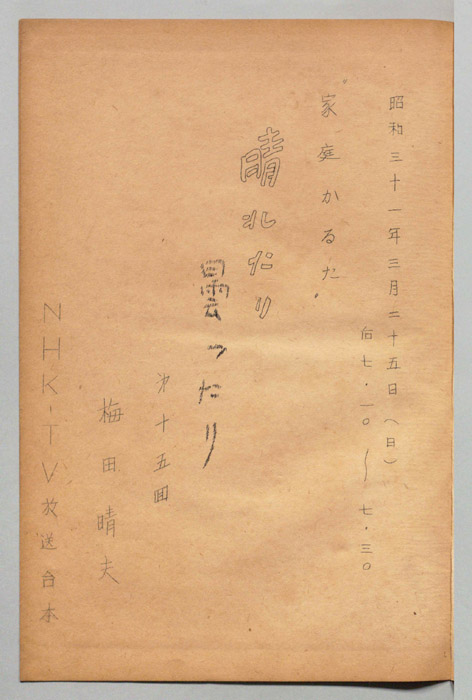 昭和三十一年三月二十五日（日）
后七・一〇〜七・三〇
家庭かるた
晴れたり
曇ったり
第十五回
梅田晴夫
NHK-TV放送台本